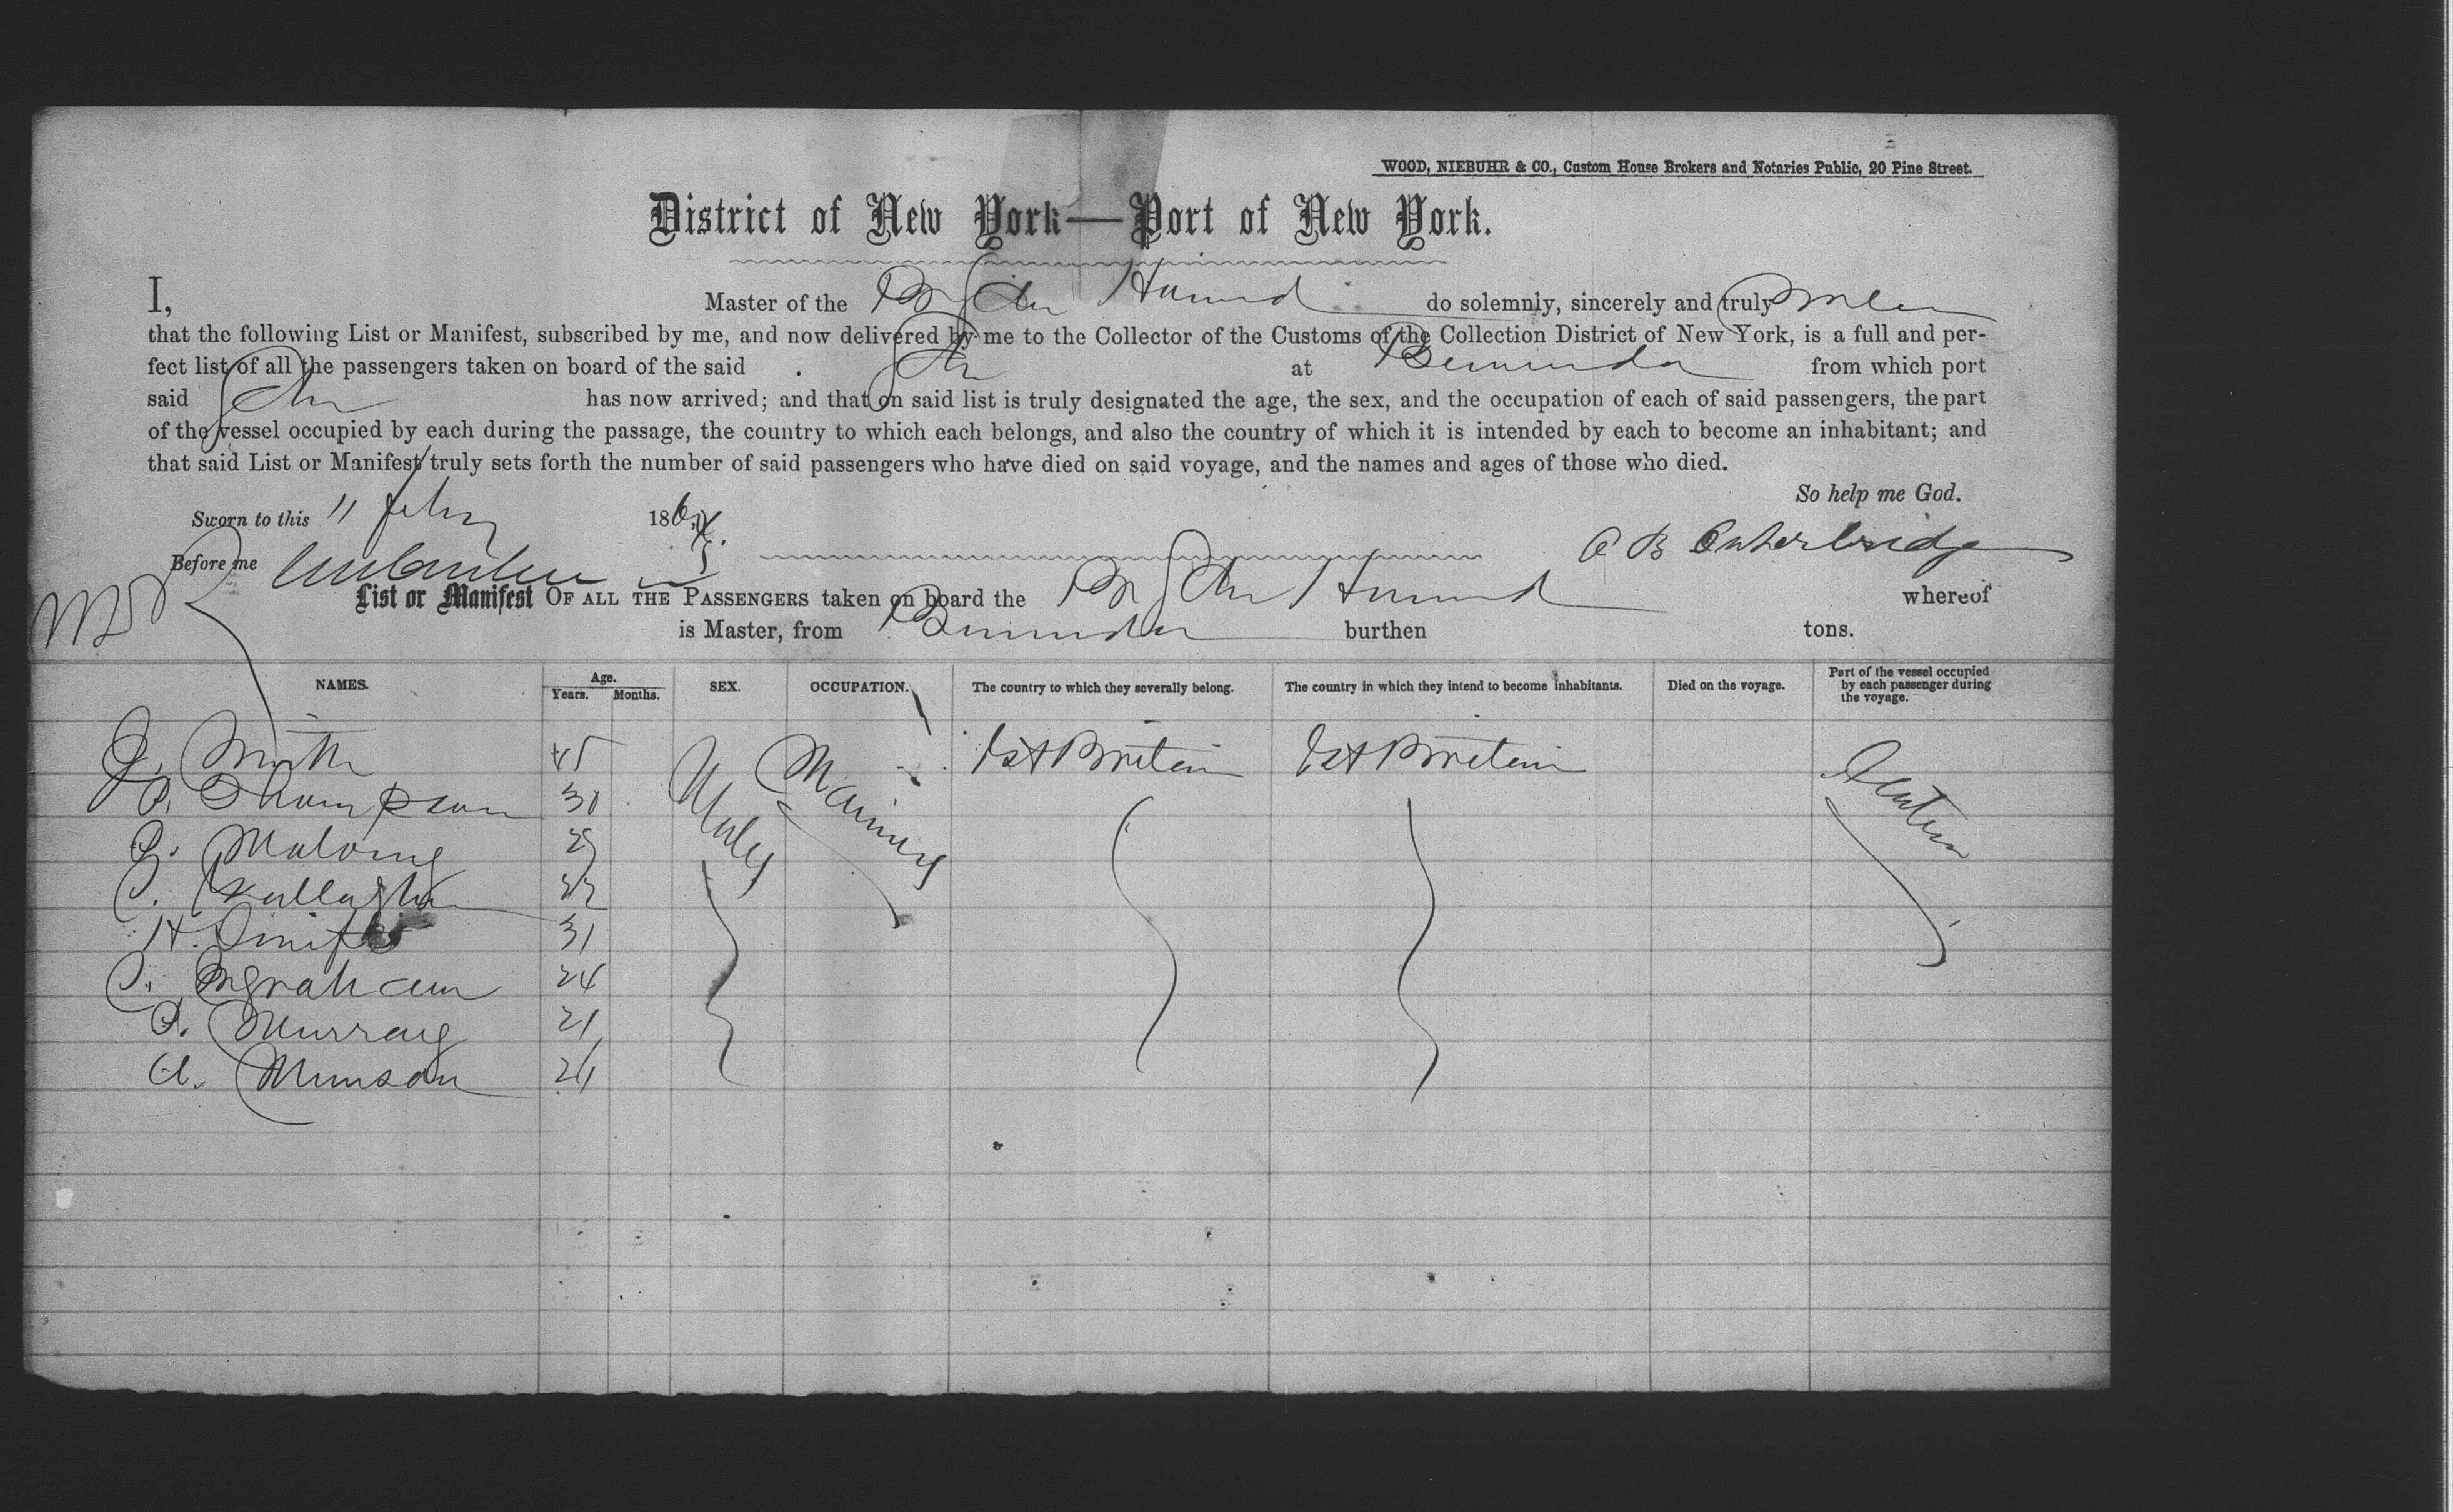 WOOD, NIEBUHR & CO., Custom House Brokers and Notaries Public, 20 Pine Street.
District of New York—Port of New York.
I, Master of the Br Schr do solemnly, sincerely and truly
that the following List or Manifest, subscribed by me, and now delivered by me to the Collector of the Customs of the Collection District of New York, is a full and per-
fect list of all the passengers taken on board of the said Schr at Bermuda from which port
said Schr has now arrived; and that on said list is truly designated the age, the sex, and the occupation of each of said passengers, the part
of the vessel occupied by each during the passage, the country to which each belongs, and also the country of which it is intended by each to become an inhabitant; and
that said List or Manifest truly sets forth the number of said passengers who have died on said voyage, and the names and ages of those who died.
So help me God.
Sworn to this 11 Feby 186
Before me
B Outerbridge
List or Manifest OF ALL THE PASSENGERS taken on board the Br Schr whereof
is Master, from Bermuda burthen tons.
NAMES. Age. Years. Months. SEX. OCCUPATION. The country to which they severally belong. The country in which they intend to become inhabitants. Died on the voyage. Part of the vessel occupied by each passenger during the voyage.
J. Smith 45 Males Mariners Gt Britain Gt Britain
P. Thompson 30
Malony 29
C. Kallaghan
H. 31
C. Ingraham 24
P. Murray 21
A. Munson 24